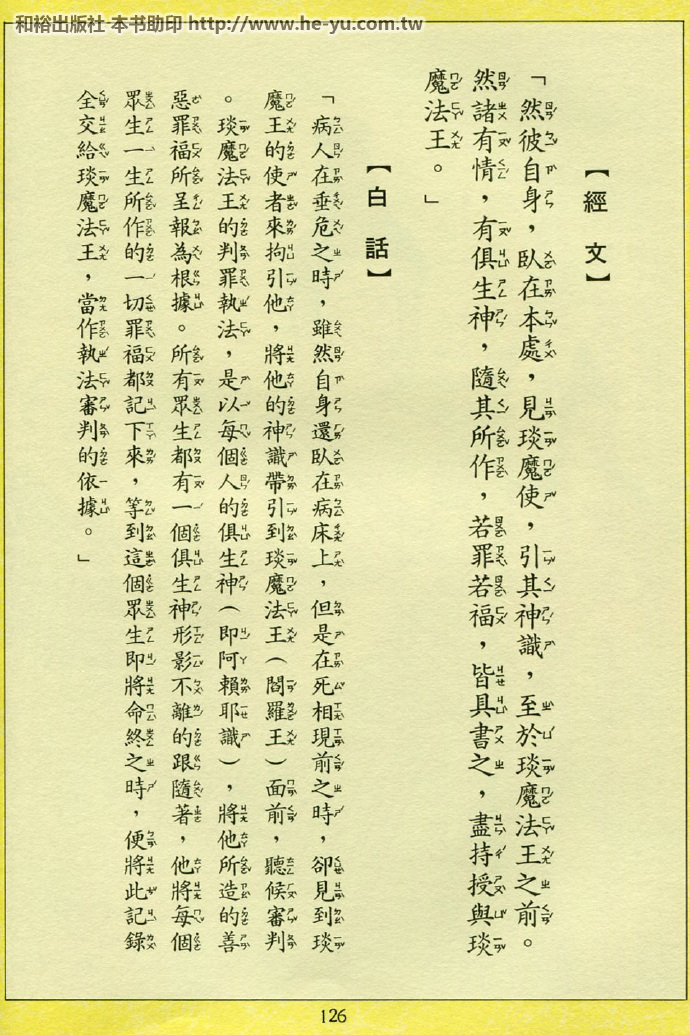 和裕出版社 本书助印 http://www.he-yu.com.tw
【經文】
「然彼自身，臥在本處，見琰魔使，引其神識，至於琰魔法王之前。
然諸有情，有俱生神，隨其所作，若罪若福，皆具書之，盡持授與琰
魔法王。」
【白話】
「病人在垂危之時，雖然自身還臥在病床上，但是在死相現前之時，卻見到琰
魔王的使者來拘引他，將他的神識帶引到琰魔法王（閻羅王）面前，聽候審判
。琰魔法王的判罪執法，是以每個人的俱生神（即阿賴耶識），將他所造的善
惡罪福所呈報為根據。所有眾生都有一個俱生神形影不離的跟隨著，他將每個
眾生一生所作的一切罪福都記下來，等到這個眾生即將命終之時，便將此記錄
全交給琰魔法王，當作執法審判的依據。」
126